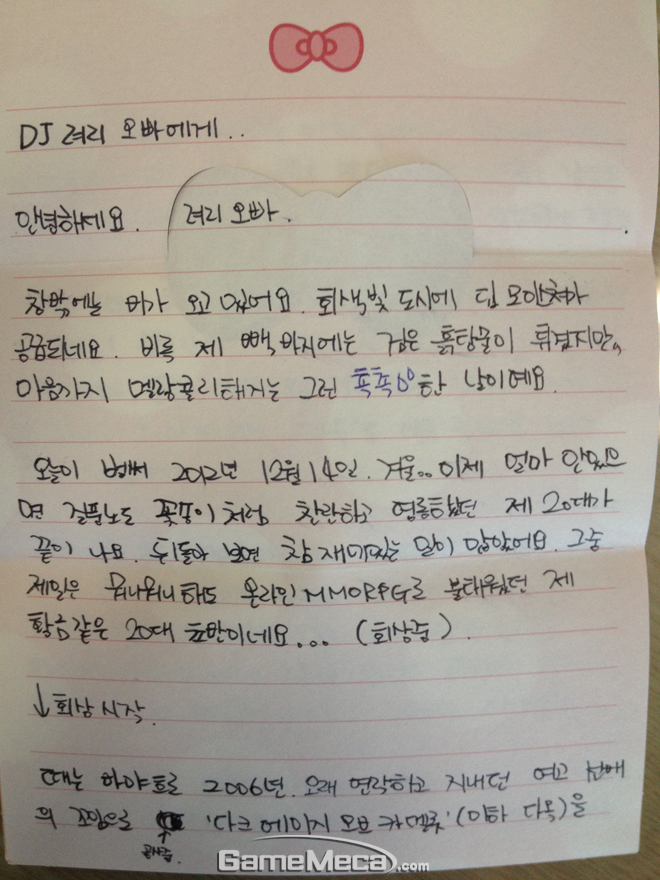 DJ 려리 오빠에게..
안녕하세요. 려리 오빠.
창밖에는 비가 오고 있어요. 회색빛 도시에 딥 모이스처가
공급되네요. 비록 제 빽바지에는 검은 흙탕물이 튀겼지만,
마음까지 멜랑꼴리해지는 그런 푹푹한 날이예요.
오늘이 벌써 2012년 12월 14일. 겨울.. 이제 얼마 안있으
면 질풍노도 꽃둥이처럼 찬란하고 영롱했던 제 20대가
끝이 나요. 뒤돌아 보면 참 재미있는 일이 많았어요. 그중
제일은 뭐니뭐니해도 온라인 MMORPG로 불태웠던 제
황금같은 20대 초반이네요... (회상중).
↓회상 시작.
때는 바야흐로 2006년. 오래 연락하고 지내던 여고 선배
의 꼬임으로 '다크 에이지 오브 카멜롯' (이하 다옥)을
GameMeca.com